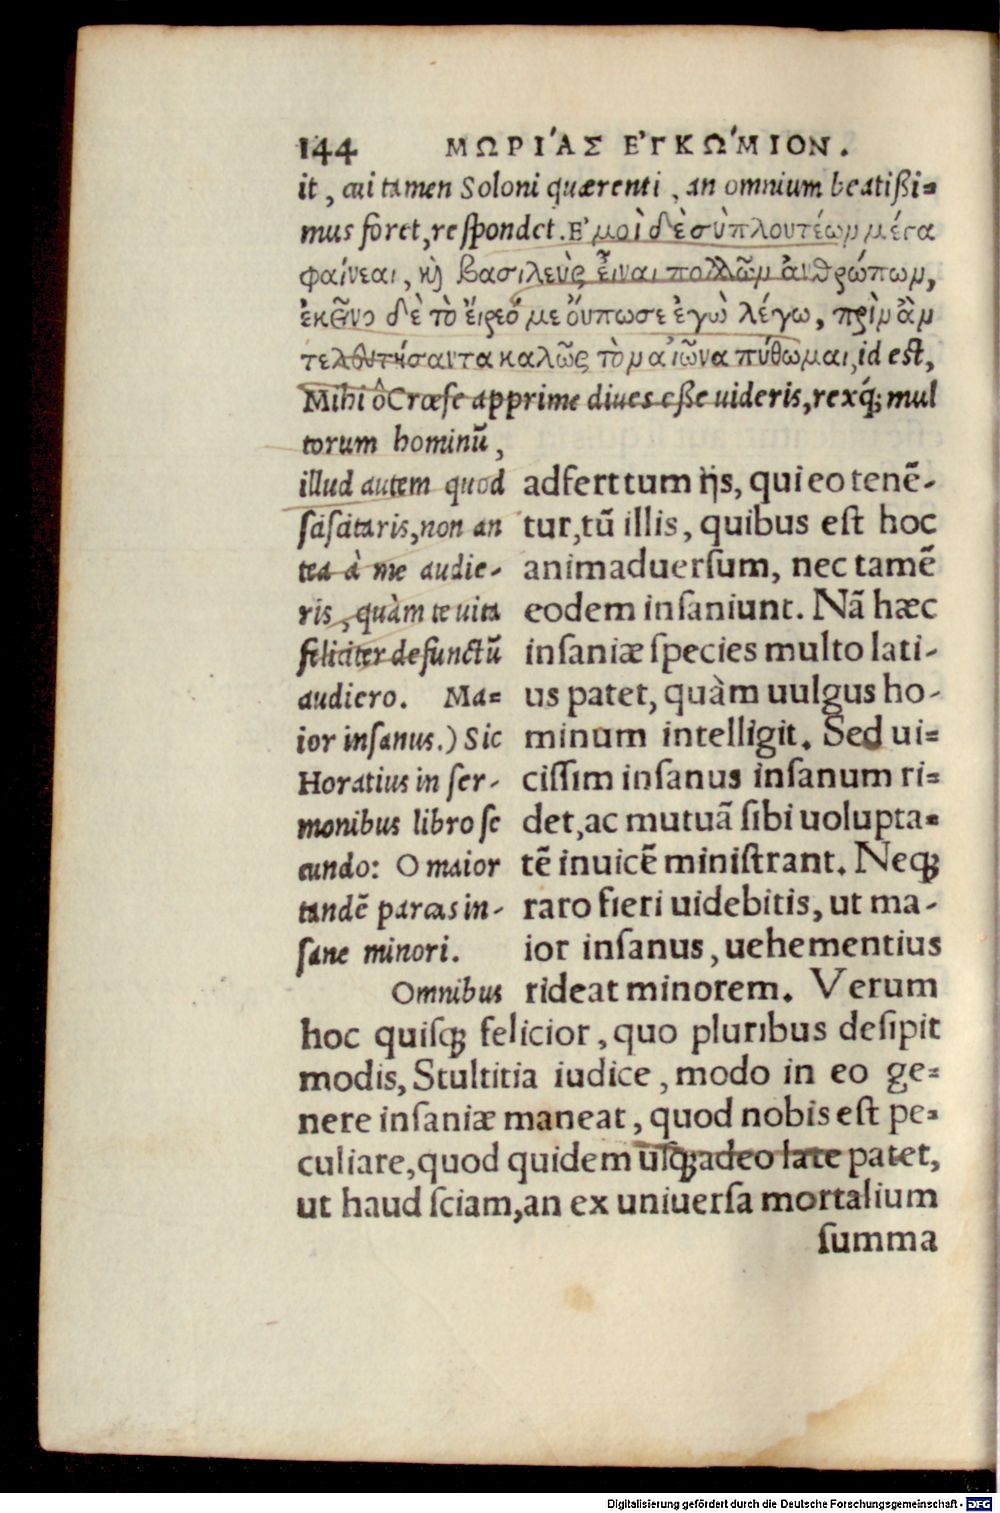 144 ΜΩΡΙ´ΑΣ ΕʼΓΚΩ´ΜΙΟΝ.
it, cui tamen Soloni quærenti, an omnium beatißi=
mus foret, respondet. Εʼμοὶ δὲ σὺ πλουτέειν μέγα
φαίνεαι, καὶ βασιλεὺς εἶναι πολλῶν ἀνθρώπων,
ἐκεῖνο δὲ τὸ εἴρεό με οὔπω σε ἐγὼ λέγω, πρὶν ἂν
τελευτήσαντα καλῶς τὸν αἰῶνα πύθωμαι, id est,
Mihi ô Crœse apprime diues eße uideris, rexq́; mul
torum hominū,
illud autem quod
sciscitaris, non an
tea à me audie-
ris, quàm te uita
feliciter defunctū
audiero. Ma=
ior insanus.) Sic
Horatius in ser-
monibus libro se
cundo: O maior
tandē parcas in-
sane minori.
Omnibus
adfert tum ijs, qui eo tenē-
tur, tū illis, quibus est hoc
animaduersum, nec tamē
eodem insaniunt. Nā hæc
insaniæ species multo lati-
us patet, quàm uulgus ho-
minum intelligit. Sed ui=
cissim insanus insanum ri=
det, ac mutuā sibi uolupta=
tē inuicē ministrant. Neq;
raro fieri uidebitis, ut ma-
ior insanus, uehementius
rideat minorem. Verum
hoc quisq; felicior, quo pluribus desipit
modis, Stultitia iudice, modo in eo ge=
nere insaniæ maneat, quod nobis est pe=
culiare, quod quidem usq; adeo late patet,
ut haud sciam, an ex uniuersa mortalium
summa
Digitalisierung gefördert durch die Deutsche Forschungsgemeinschaft - DFG